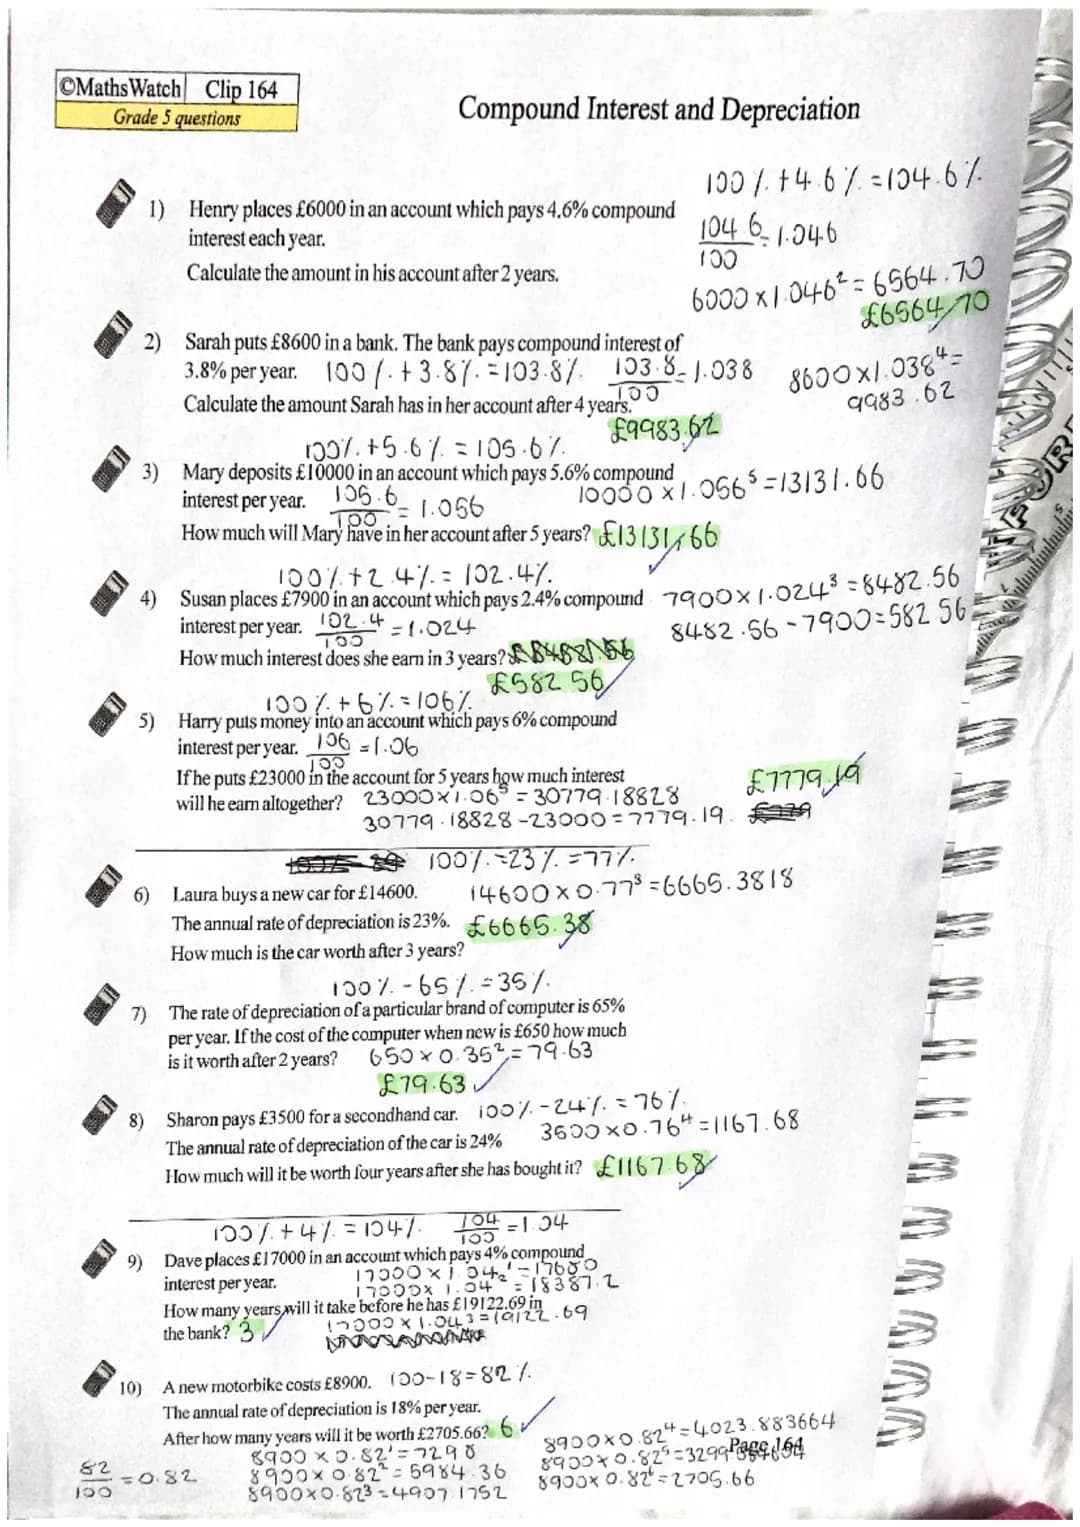 ©MathsWatch Clip 164
Grade 5 questions
Compound Interest and Depreciation
100%+4.6%=104.6%
1) Henry places £6000 in an account which pays 4.6% compound
interest each year.
104.6/100=1.046
Calculate the amount in his account after 2 years.
6000×1.046²=6564.70
£6564.70
2) Sarah puts £8600 in a bank. The bank pays compound interest of
3.8% per year. 100%+3.8%=103.8% 103.8/100=1.038
8600×1.038⁴=
9983.62
Calculate the amount Sarah has in her account after 4 years.
£9983.62
100%+5.6%=105.6%
3) Mary deposits £10000 in an account which pays 5.6% compound
interest per year. 105.6/100=1.056 10000×1.056⁵=13131.66
How much will Mary have in her account after 5 years? £13131.66
100%+2.4%=102.4%
4) Susan places £7900 in an account which pays 2.4% compound 7900×1.024³=8482.56
interest per year. 102.4/100=1.024 8482.56-7900=582 56
How much interest does she earn in 3 years?
£582 56
100%+6%=106%
5) Harry puts money into an account which pays 6% compound
interest per year. 106/100=1.06
If he puts £23000 in the account for 5 years how much interest £7779.19
will he earn altogether? 23000×1.06⁵=30779.18828
30779.18828-23000=7779.19.
100%-23%=77%
6) Laura buys a new car for £14600. 14600×0.77³=6665.3818
The annual rate of depreciation is 23%. £6665.38
How much is the car worth after 3 years?
100%-65%=35%
7) The rate of depreciation of a particular brand of computer is 65%
per year. If the cost of the computer when new is £650 how much
is it worth after 2 years? 650×0.35²=79.63
£79.63
8) Sharon pays £3500 for a secondhand car. 100%-24%=76%
The annual rate of depreciation of the car is 24% 3500×0.76⁴=1167.68
How much will it be worth four years after she has bought it? £1167.68
100%+4%=104% 104/100=1.04
9) Dave places £17000 in an account which pays 4% compound
interest per year. 17000×1.04¹=17680
17000×1.04²=18387.2
How many years will it take before he has £19122.69 in
the bank? 3 17000×1.04³=19122.69
10) A new motorbike costs £8900. 100-18=82%
The annual rate of depreciation is 18% per year.
After how many years will it be worth £2705.66? 6
82/100=0.82
8900×0.82¹=7298
8900×0.82²=5984.36
8900×0.82³=4907.1752
8900×0.82⁴=4023.883664
8900×0.82⁵=3299
Page 164
8900×0.82⁶=2705.66